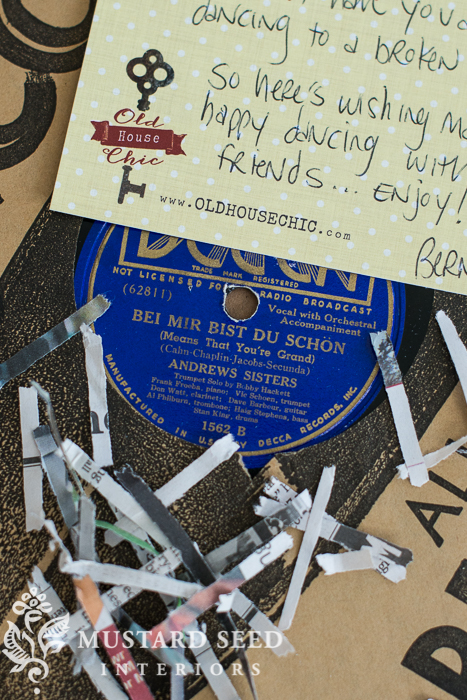 have you
dancing to a broken
So here's wishing
happy dancing with
friends... ENJOY!
Old
House
Chic
www.OLDHOUSECHIC.com
DECCA
TRADE MARK REGISTERED
NOT LICENSED FOR RADIO BROADCAST
(62811)
Vocal with Orchestral
Accompaniment
BEI MIR BIST DU SCHÖN
(Means That You're Grand)
(Cahn-Chaplin-Jacobs-Secunda)
ANDREWS SISTERS
Trumpet Solo by Bobby Hackett
Frank Froeba, piano; Vic Schoen, trumpet
Don Watt, clarinet; Dave Barbour, guitar
Al Philburn, trombone; Haig Stephens, bass
Stan King, drums
1562 B
MANUFACTURED IN U.S. BY DECCA RECORDS, INC.
MUSTARD SEED
INTERIORS